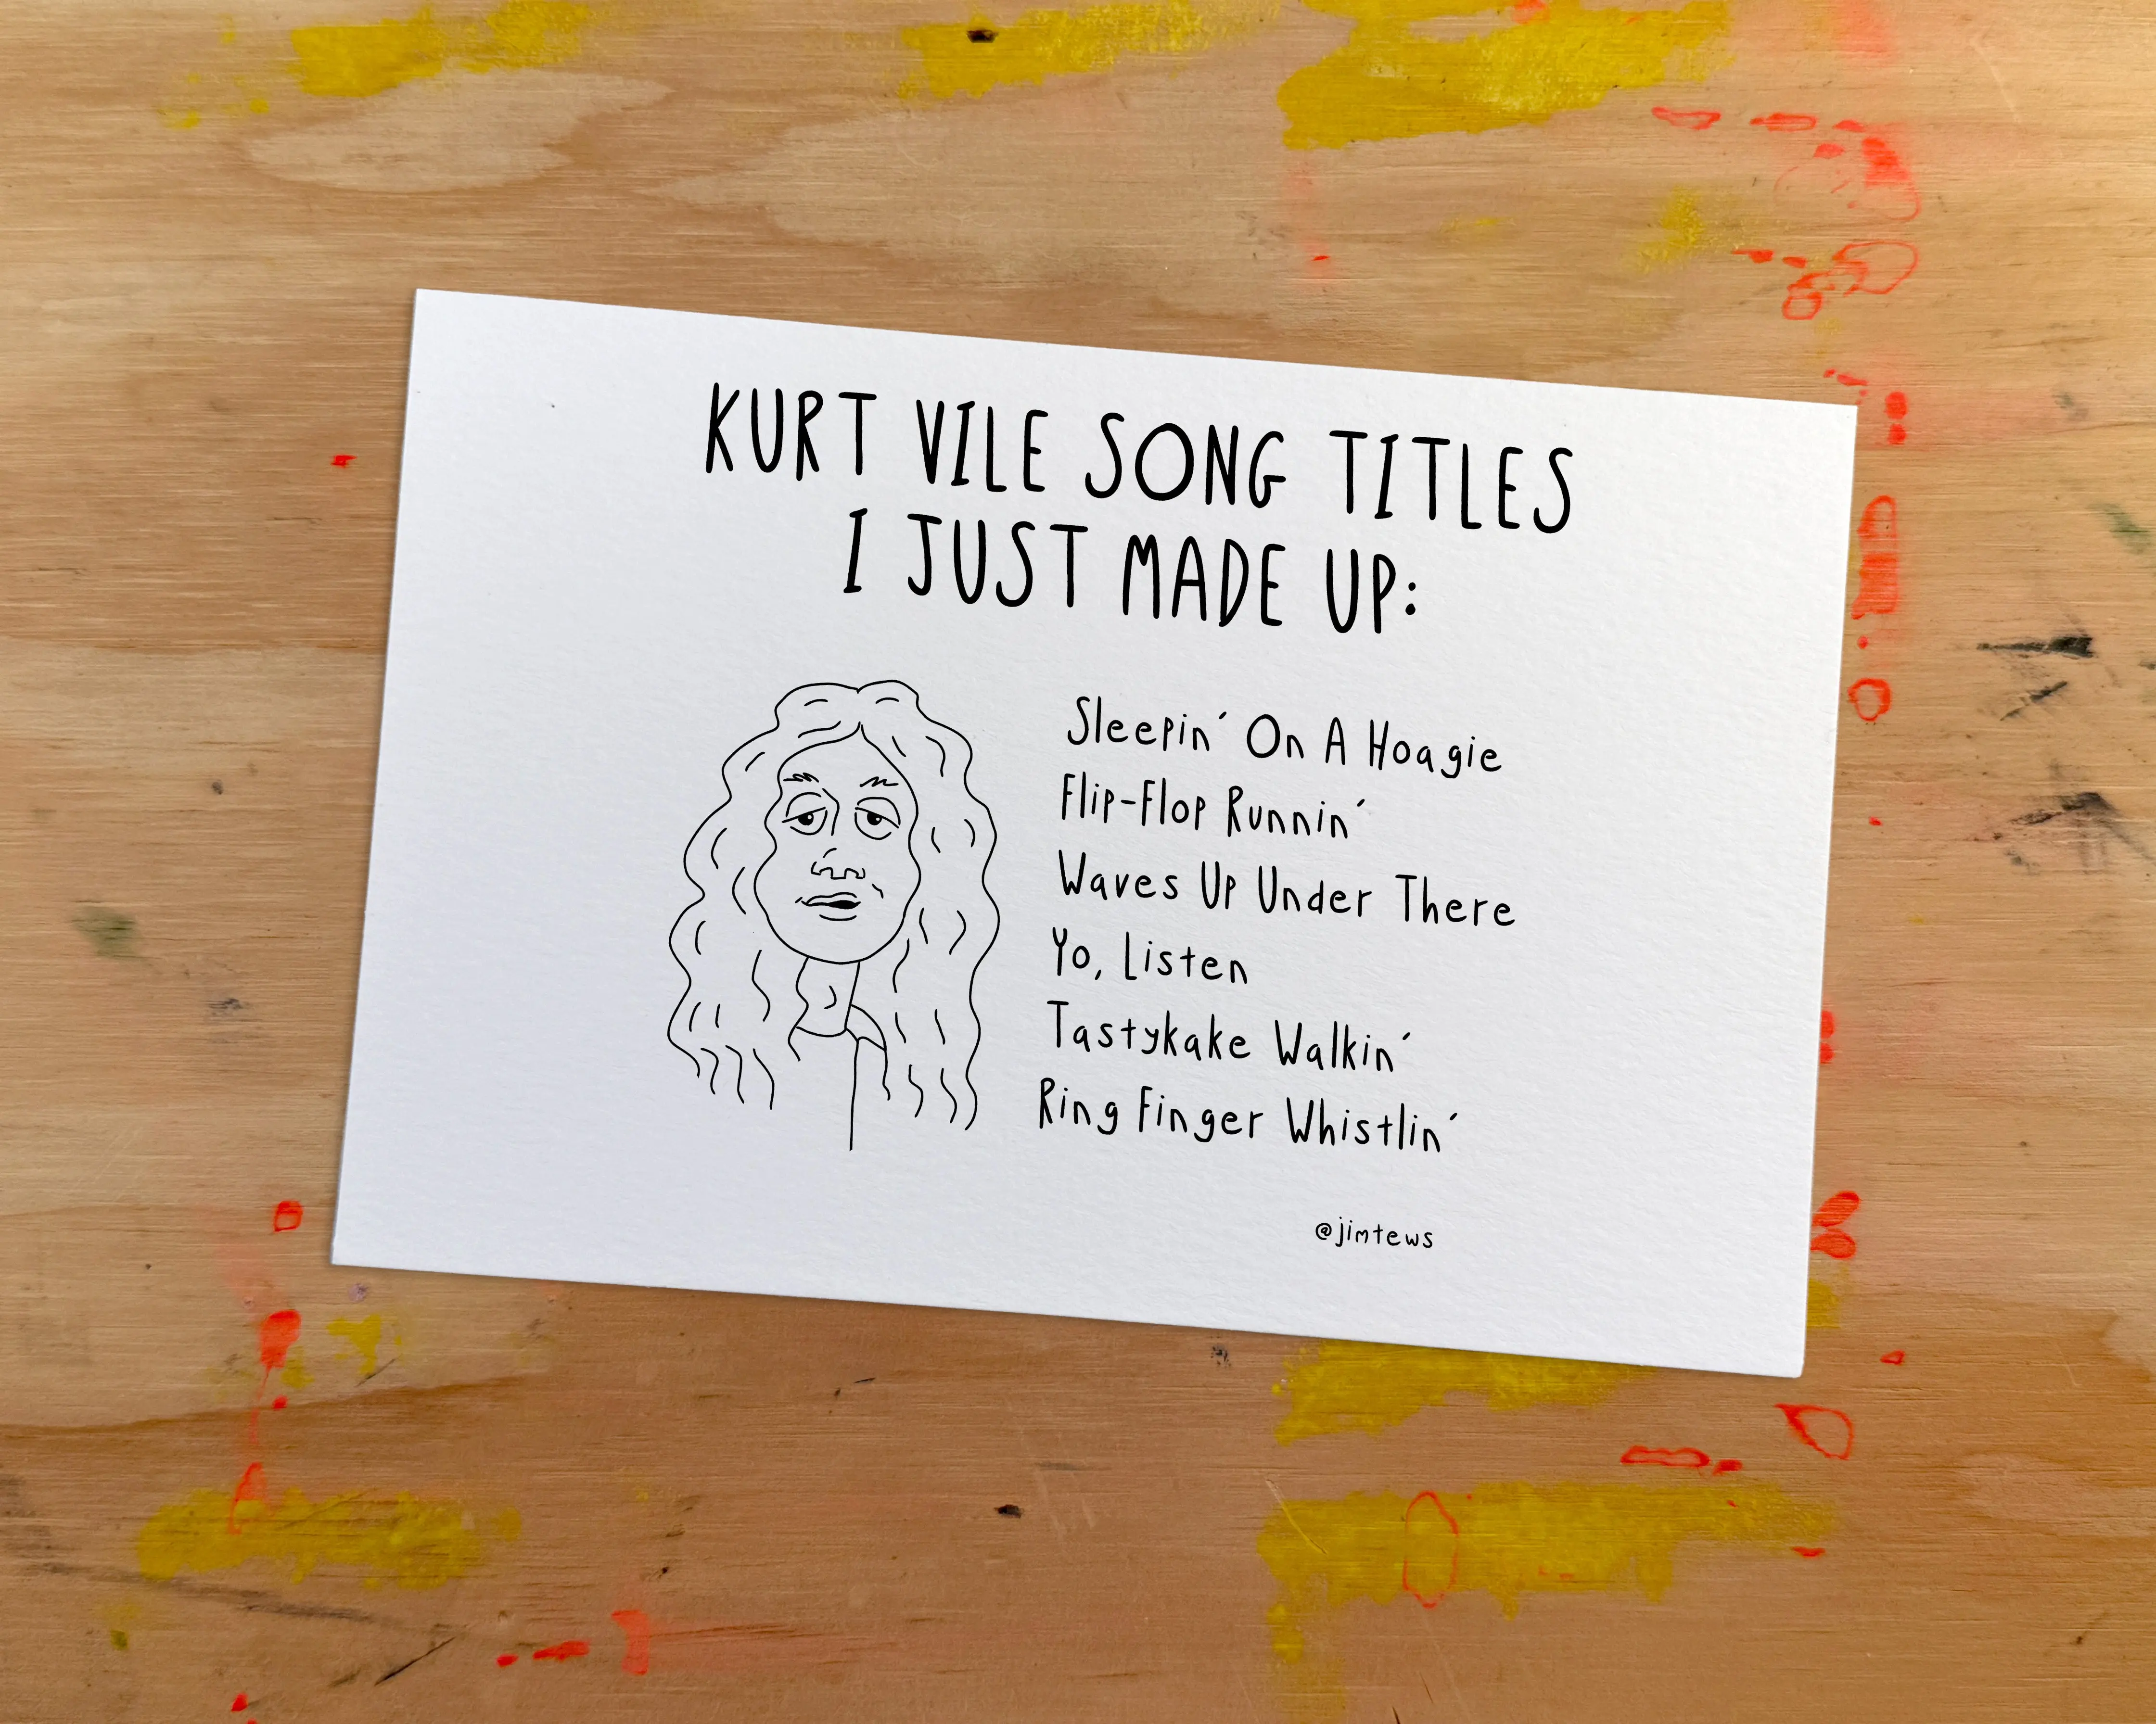 KURT VILE SONG TITLES
I JUST MADE UP:
Sleepin' On A Hoagie
Flip-Flop Runnin'
Waves Up Under There
Yo, Listen
Tastykake Walkin'
Ring Finger Whistlin'
@jimtews